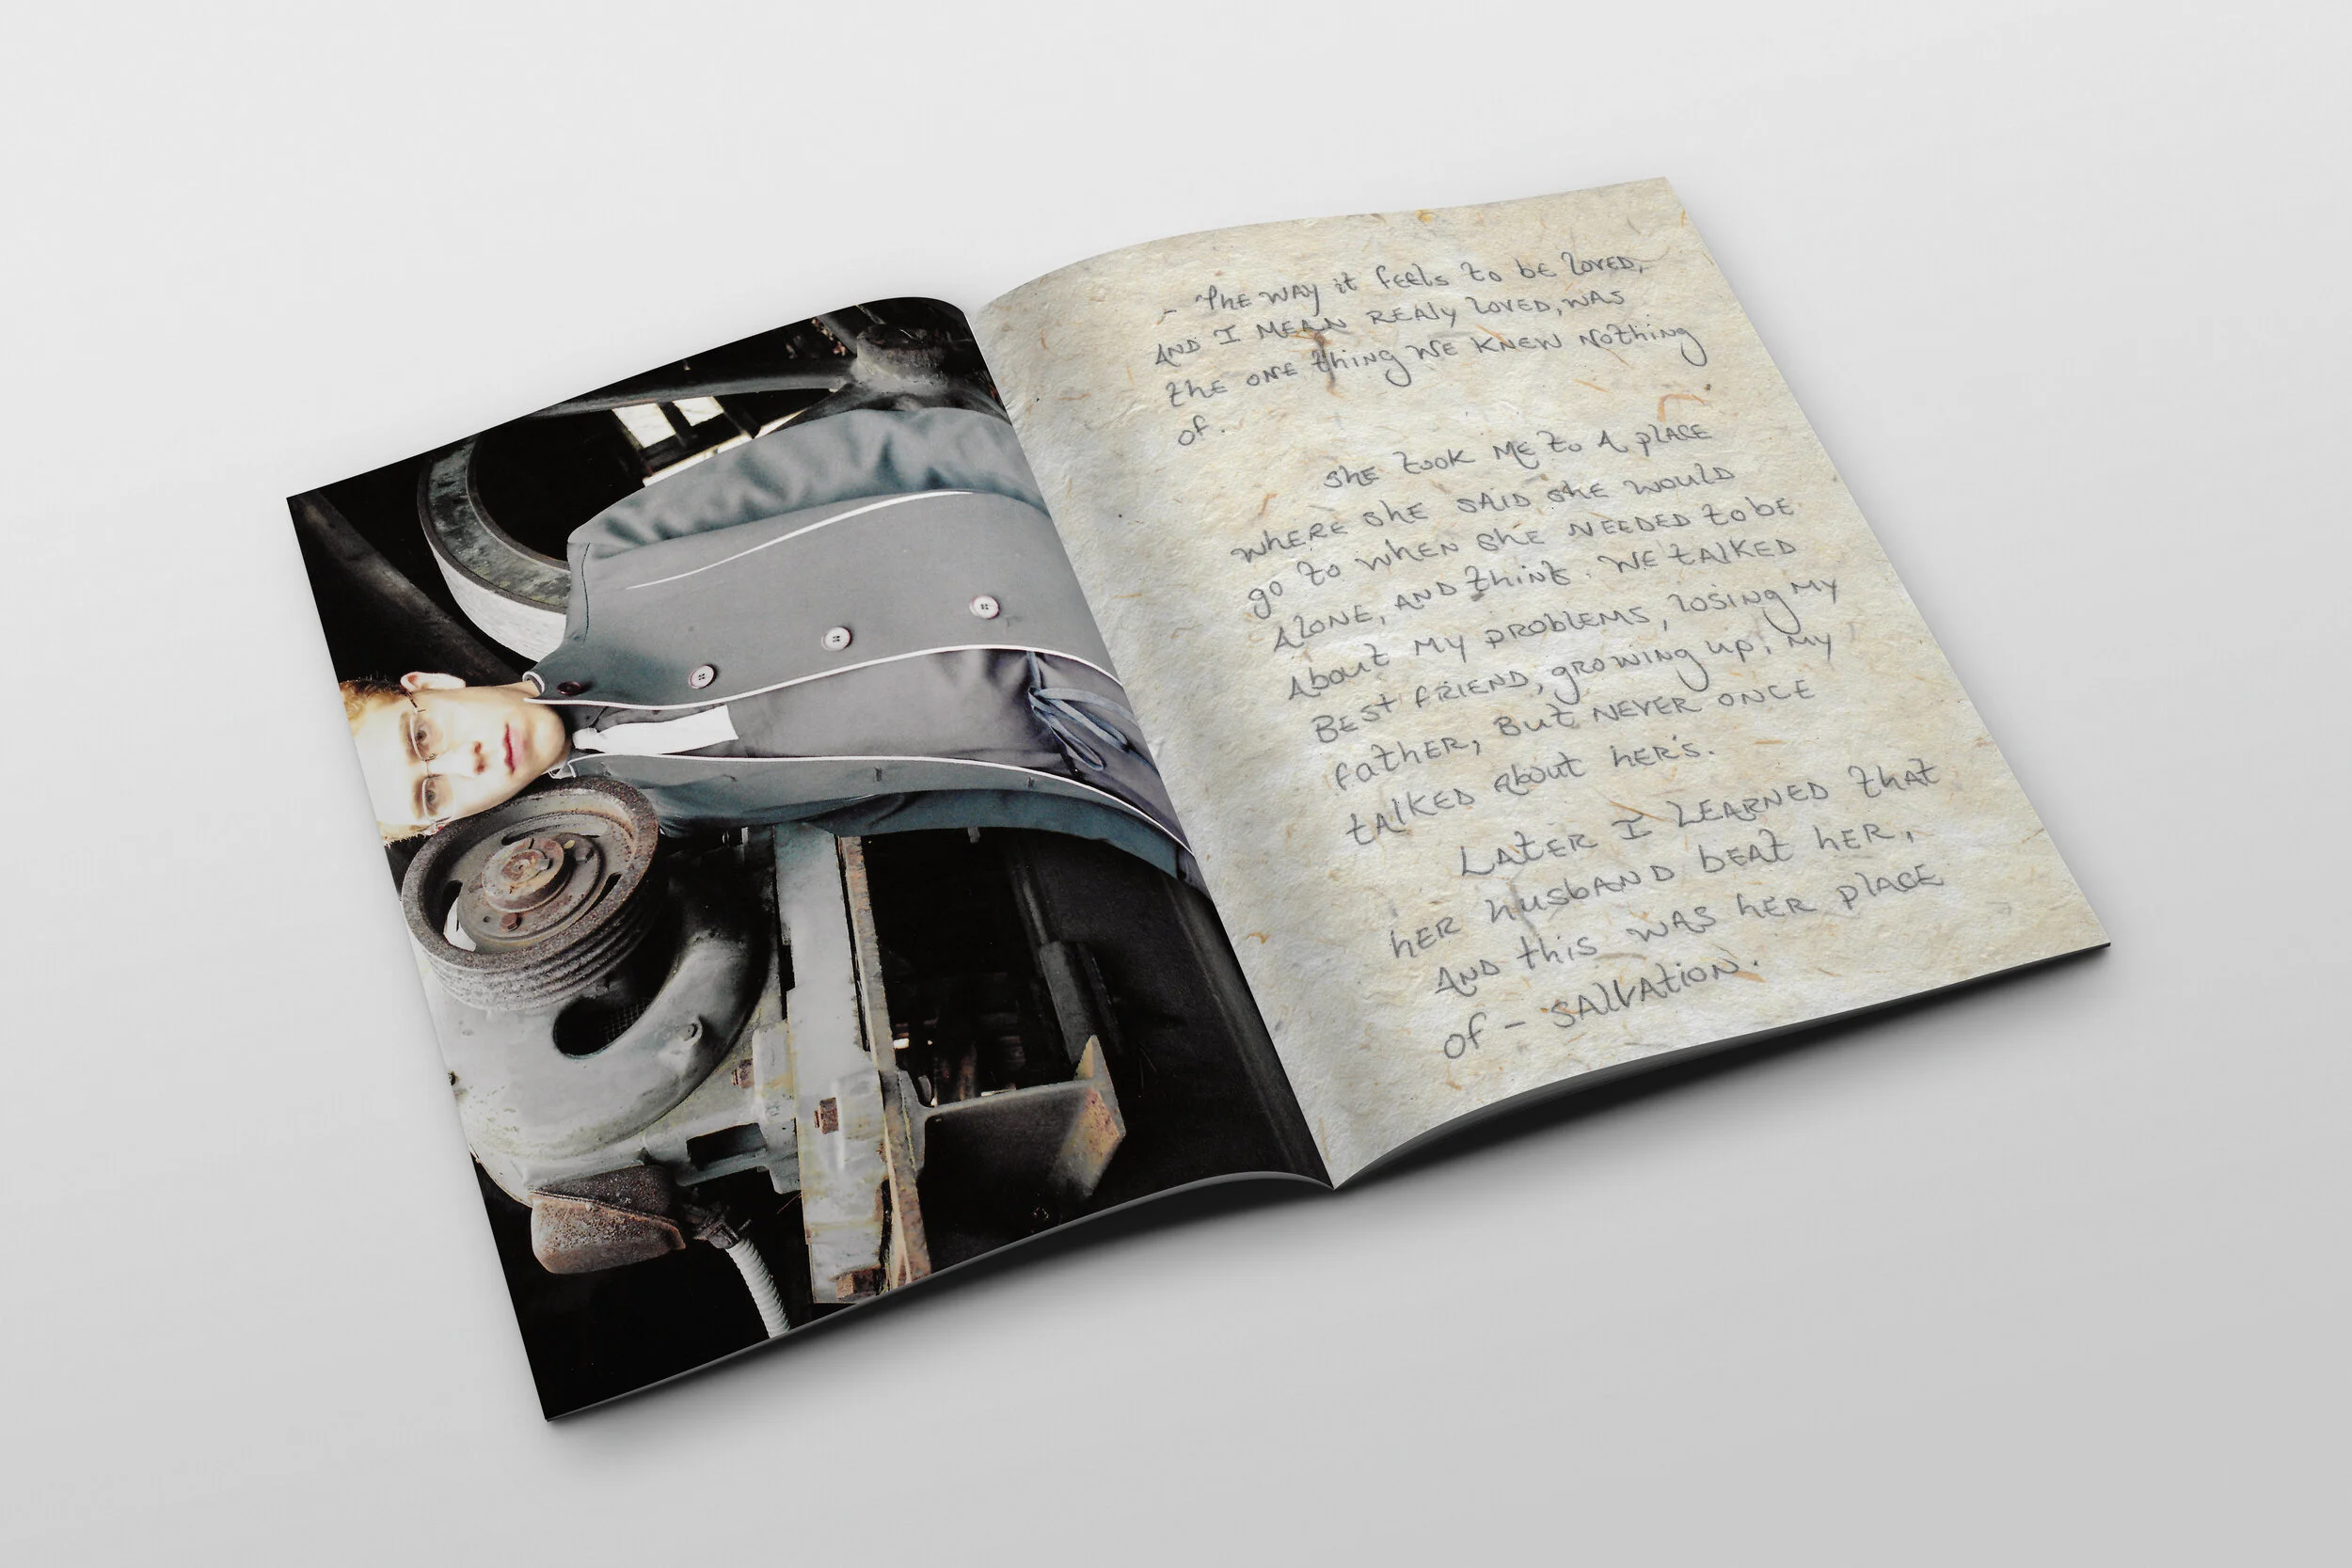 - The way it feels to be loved,
AND I MEAN REALY LOVED, WAS
the ONE thing WE KNEW Nothing
of.
She took ME to A place
WHERE she SAID she WOULD
go to WHEN she NEEDED to be
ALONE, AND think. WE tALKED
About my PROBLEMS, losing my
BEst fRIEND, gROWING up, my
fatHER, But NEVER ONCE
tALKED about HER's.
LAtER I LEARNED that
HER HusbAND bEAt HER,
AND this WAS HER place
of - SALVAtION.